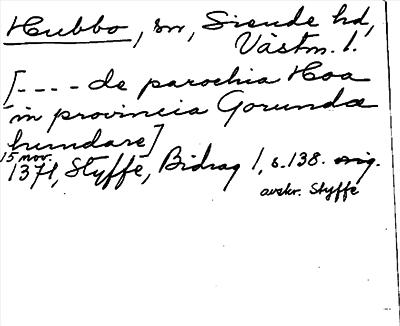 Hubbo, sn, Siende hd,
Västm. l.
[---- de parochia Hoa
in provincia Gorunda
hundare]
15 nov.
1371, Styffe, Bidrag 1, s. 138. orig.
avskr. Styffe